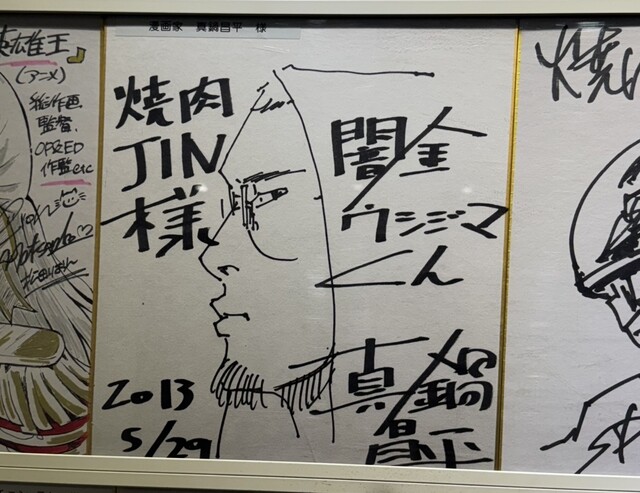 漫画家 真鍋昌平 様
焼肉
JIN
様
闇金
ウシジマ
くん
真鍋
昌平
2013
5/29
雄王
(アニメ)
総作画
監督、
OP&ED
作監etc
焼